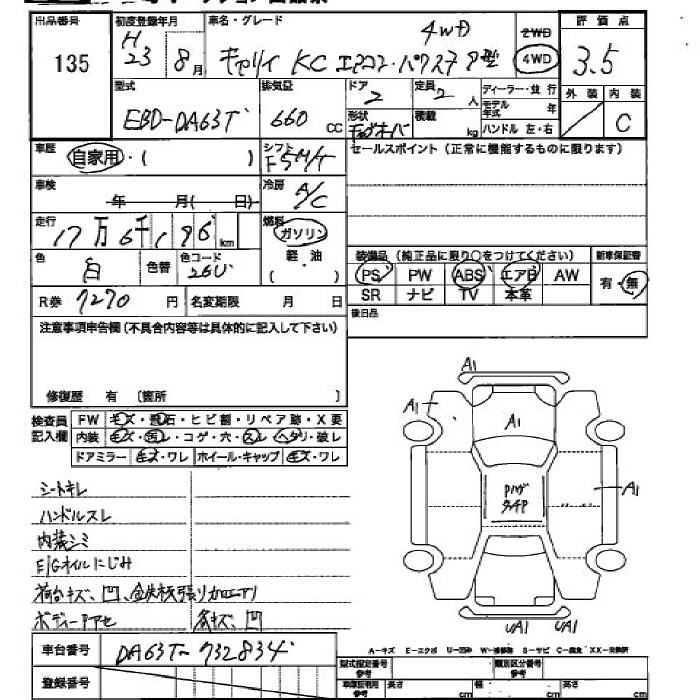 出品番号 初度登録年月 車名・グレード 評価点
135 H23 8月 キャリイ KC エアコン・パワステ 4WD 2WD 4WD 3.5
型式 排気量 ドア 定員 ディーラー・並行 外装 内装
EBD-DA63T 660 CC 2 2人 モデル年式 年 C
形状 積載 kg ハンドル 左・右
車歴 自家用・( ) シフト F5M/T セールスポイント(正常に機能するものに限ります)
車検 年 月( 日) 冷房 A/C
走行 17万6千196 km 燃料 ガソリン
軽油
( )
色 白 色替 色コード 26U
装備品(純正品に限り○をつけてください) 新車保証書
PS PW ABS エアB AW 有・無
SR ナビ TV 本革
R券 7270 円 名変期限 月 日 後日品
注意事項申告欄(不具合内容等は具体的に記入して下さい)
修復歴 有 〔箇所 〕
検査員記入欄 FW キズ・飛石・ヒビ割・リペア跡・X要
内装 キズ・汚レ・コゲ・穴・スレ・ヘタリ・破レ
ドアミラー キズ・ワレ ホイール・キャップ キズ・ワレ
A1
A1
A1
A1
UA1 UA1
シートキレ
ハンドルスレ
内装シミ
E/Gオイルにじみ
荷台キズ、凹、鉄板張り
ボディーアセ 各キズ、凹
A-キズ E-エクボ U-凹み W-補修跡 S-サビ C-腐食 XX-交換済
車台番号 DA63T-732834
登録番号
型式指定番号 類別区分番号
参考 長さ cm 幅 cm 高さ cm